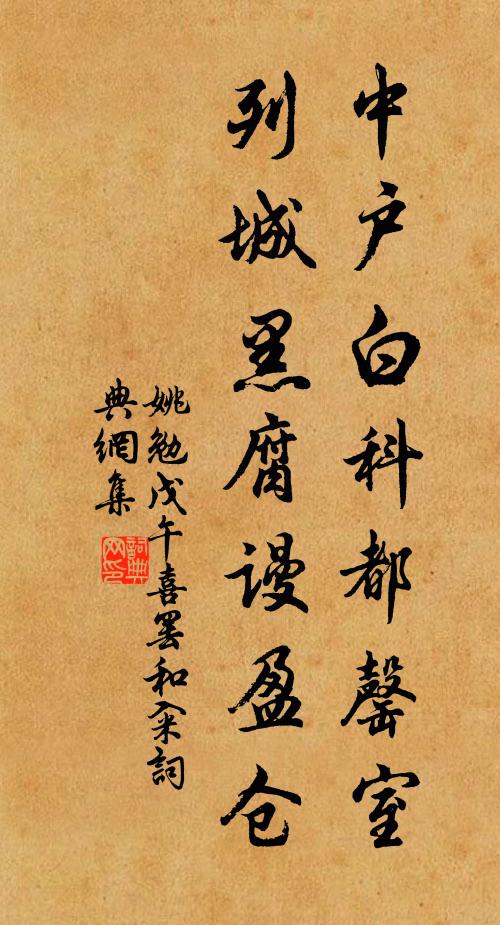 中户白科都罄室
列城黑腐谩盈仓
姚勉戊午喜罢和籴詞
典網集
詞典
网印